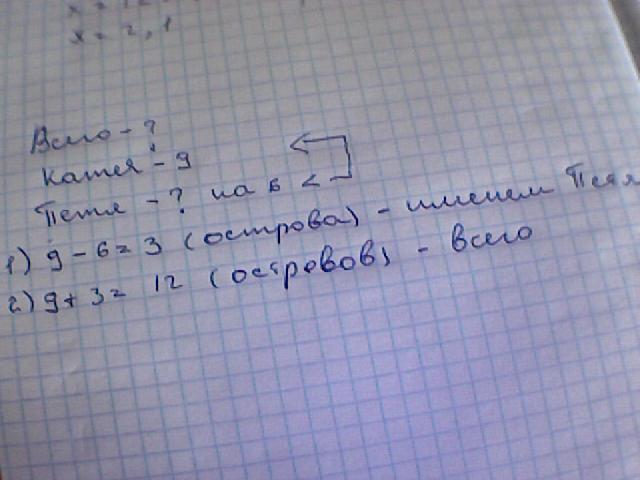 x = 12
x = 2,1
Всего - ?
Катя - 9
Петя - ? на 6 <
1) 9 - 6 = 3 (острова) - именем Петя
2) 9 + 3 = 12 (островов) - Всего